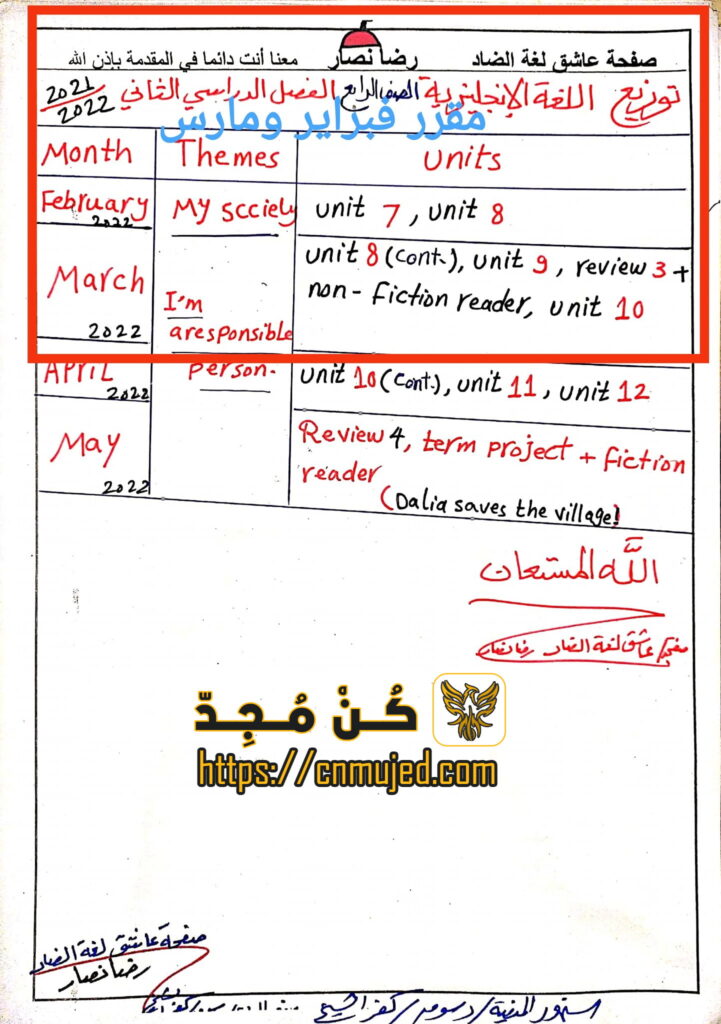 صفحة عاشق لغة الضاد رضا نصار معنا أنت دائما في المقدمة بإذن الله
توزيع اللغة الإنجليزية الصف الرابع الفصل الدراسي الثاني 2021/2022
مقرر فبراير ومارس
Month Themes Units
February 2022 MyScciely unit 7, unit 8
March 2022 I'm aresponsible person. unit 8 (cont.), unit 9, review 3 +
non-fiction reader, unit 10
April 2022 unit 10 (cont.), unit 11, unit 12
May 2022 Review 4, term project + fiction
reader
(Dalia saves the village!
الله المستعان
صفحة عاشق لغة الضاد رضا نصار
كُنْ مُجِدّ
https://cnmujed.com
صفحة عاشق لغة الضاد
رضا نصار
كفر الشيخ